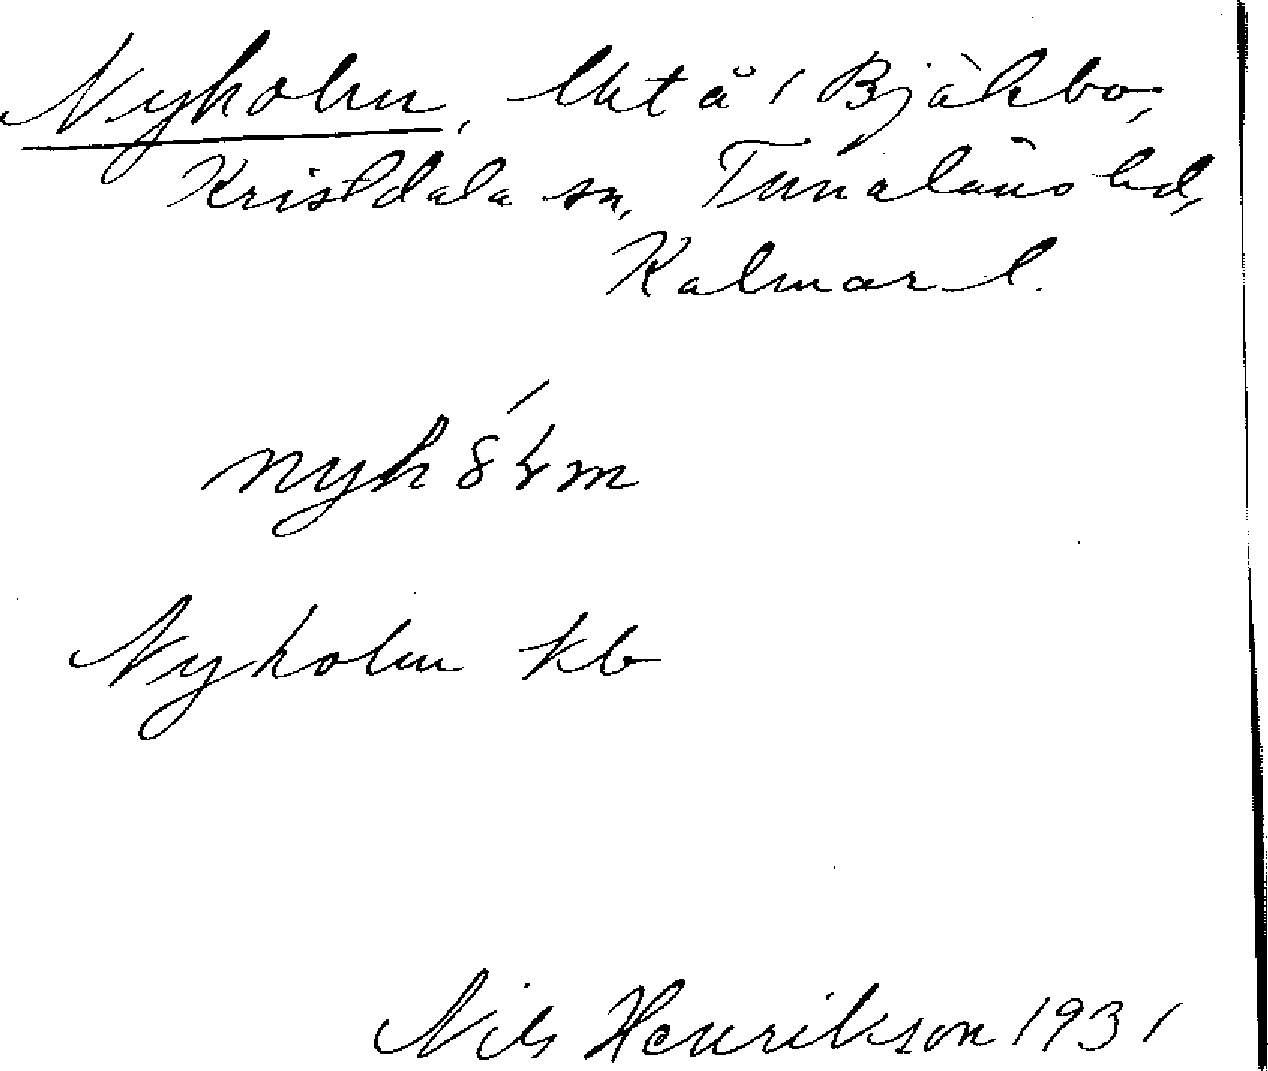 Nyholm, lht å 1 Bjälebo,
Kristdala sn, Tunaläns hd,
Kalmar l.
nyhółm
Nyholm kb
Nils Henrikson 1931